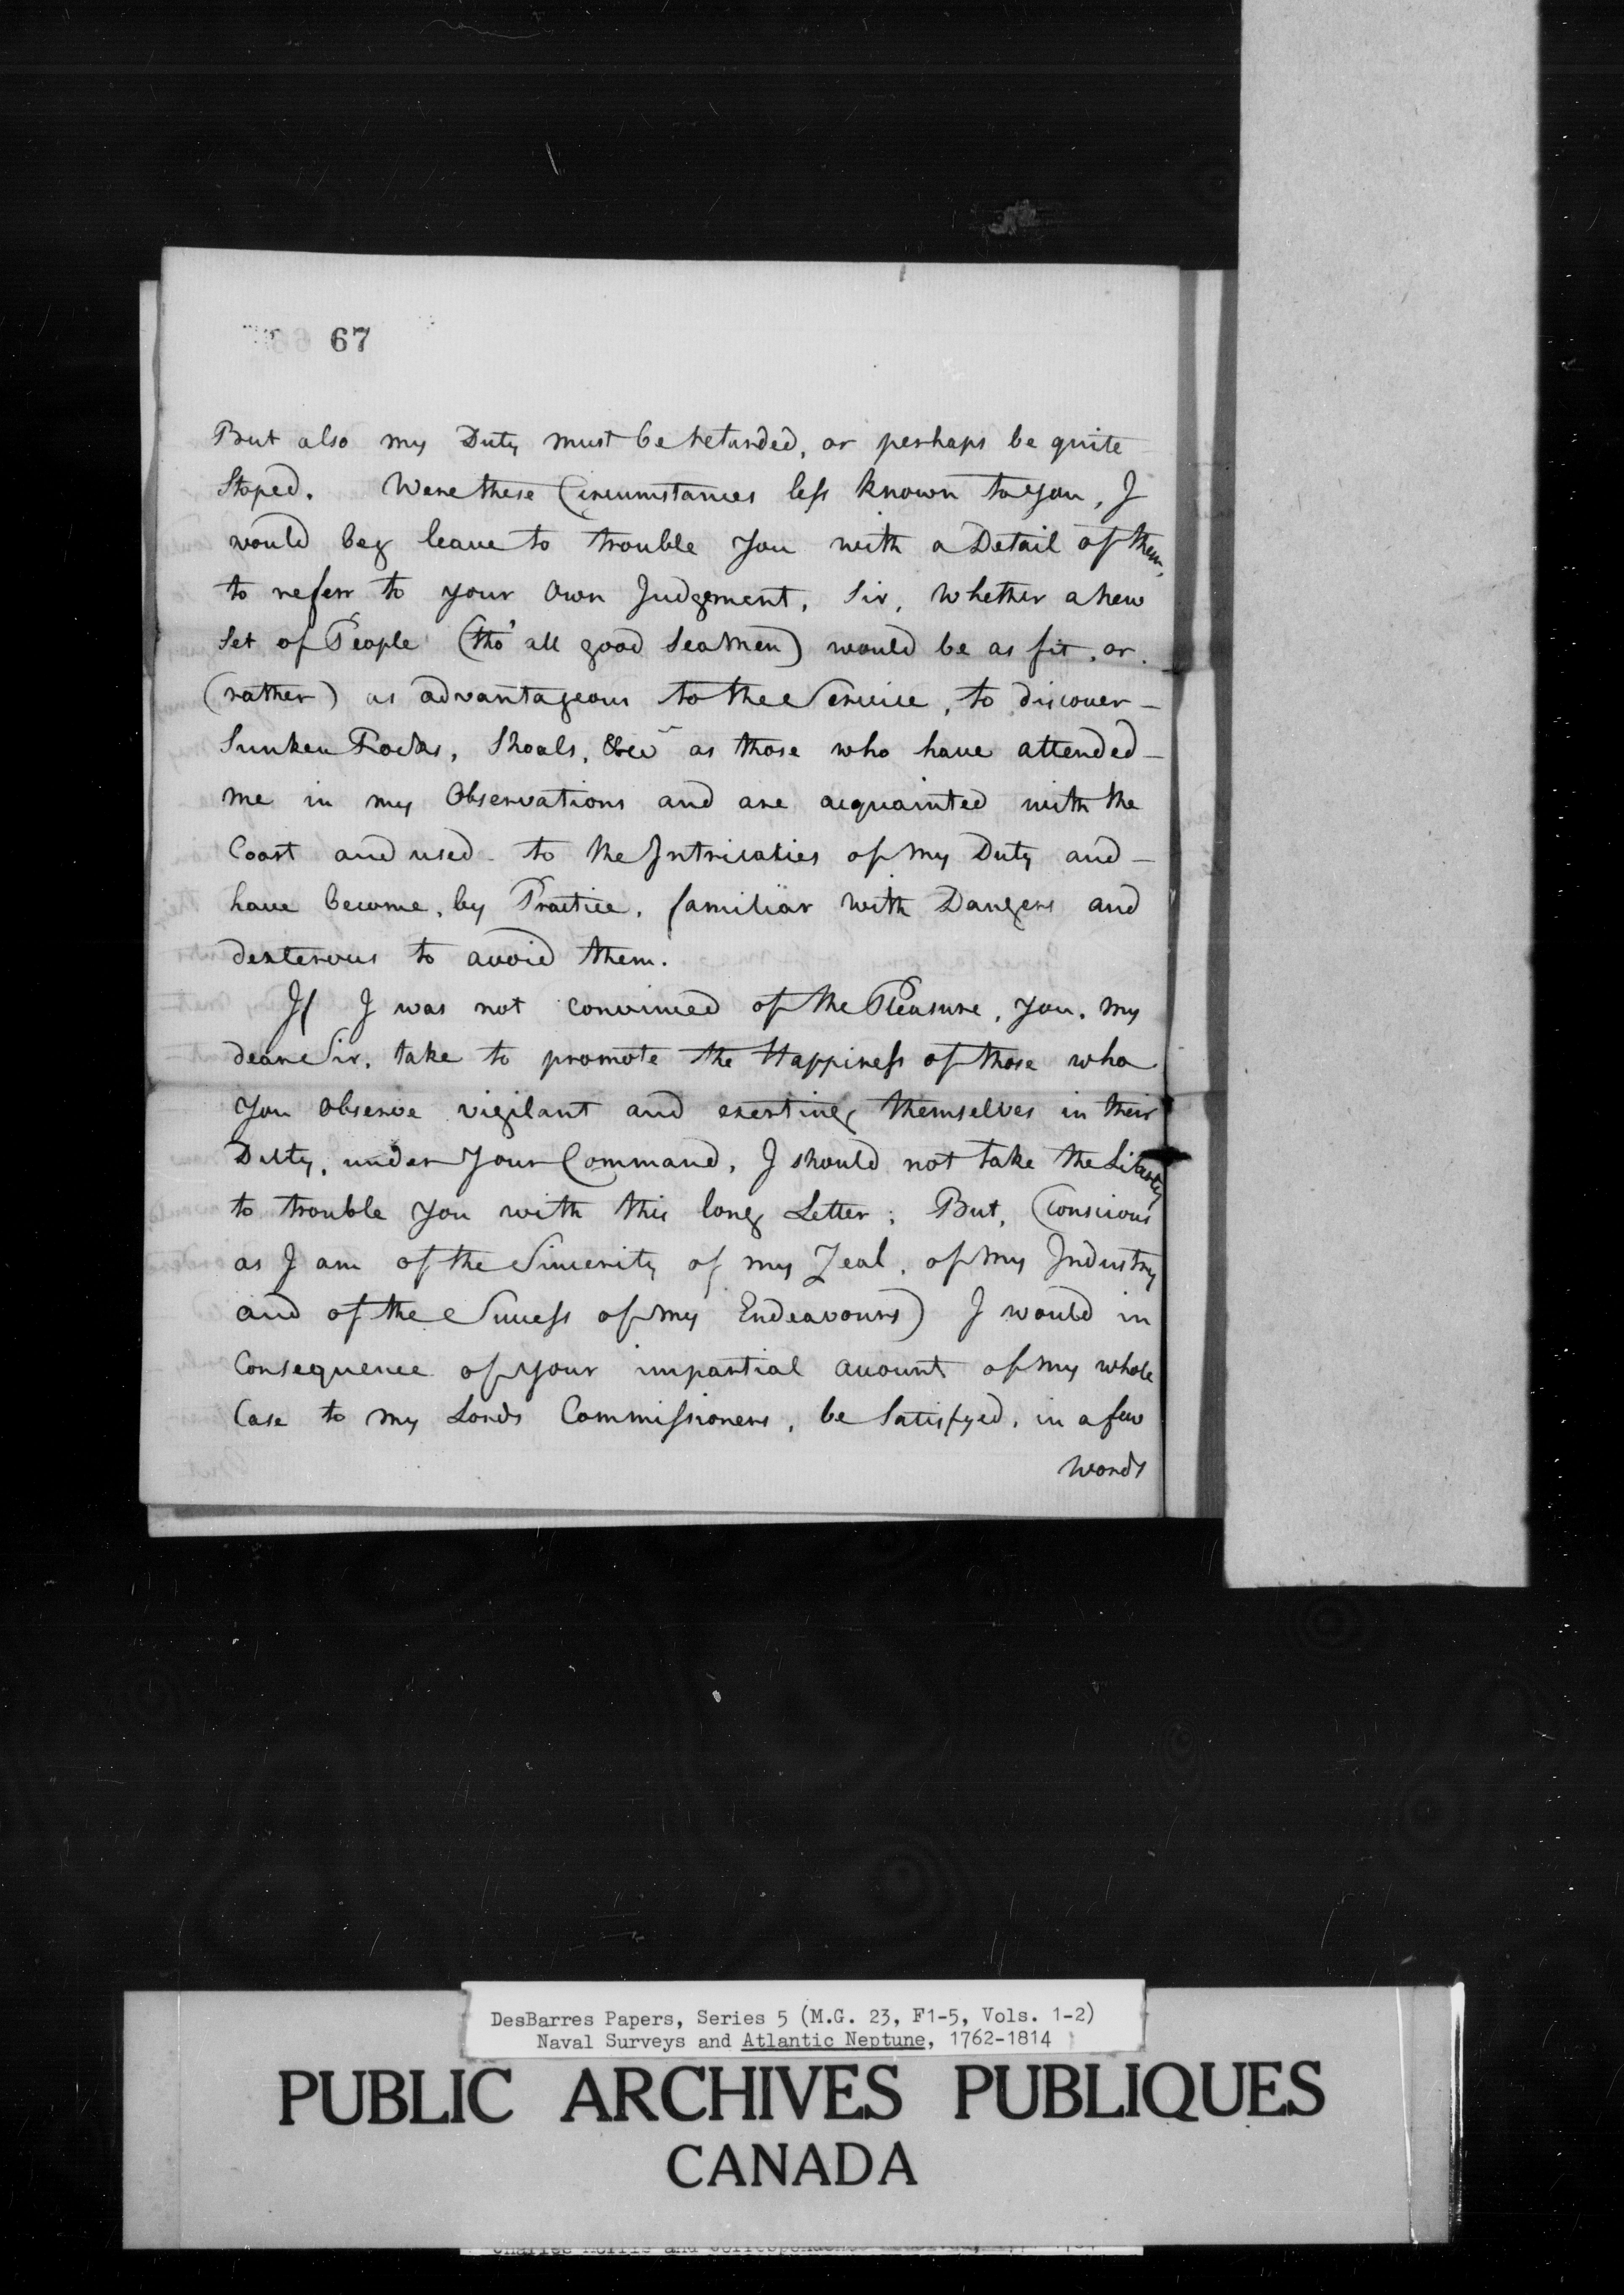 67
But also my Duty must be retarded, or perhaps be quite
Stoped. Were these Circumstances less known to You, I
would beg leave to trouble You with a Detail of them,
to referr to your Own Judgement, Sir, Whether a new
Set of People (tho' all good SeaMen) would be as fit, or
(rather) as advantageous to the Service, to discover –
Sunken Rocks, Shoals, &ca as those who have attended –
me in my Observations and are acquainted with the
Coast and used to the Intricaties of my Duty and –
have become, by Practice, familiar with Dangers and
dexterous to avoid them.
If I was not convinced of the Pleasure, You, my
dear Sir, take to promote the Happiness of those who
You observe vigilant and exerting themselves in their
Duty, under Your Command, I should not take the Liberty
to trouble You with this long Letter; But, (Conscious
as I am of the Sincerity of my Zeal, of my Industry
and of the Success of my Endeavours) I would in
Consequence of your impartial account of my whole
Case to my Lords Commissioners, be Satisfyed, in a few
words
DesBarres Papers, Series 5 (M.G. 23, F1-5, Vols. 1-2)
Naval Surveys and Atlantic Neptune, 1762-1814
PUBLIC ARCHIVES PUBLIQUES
CANADA